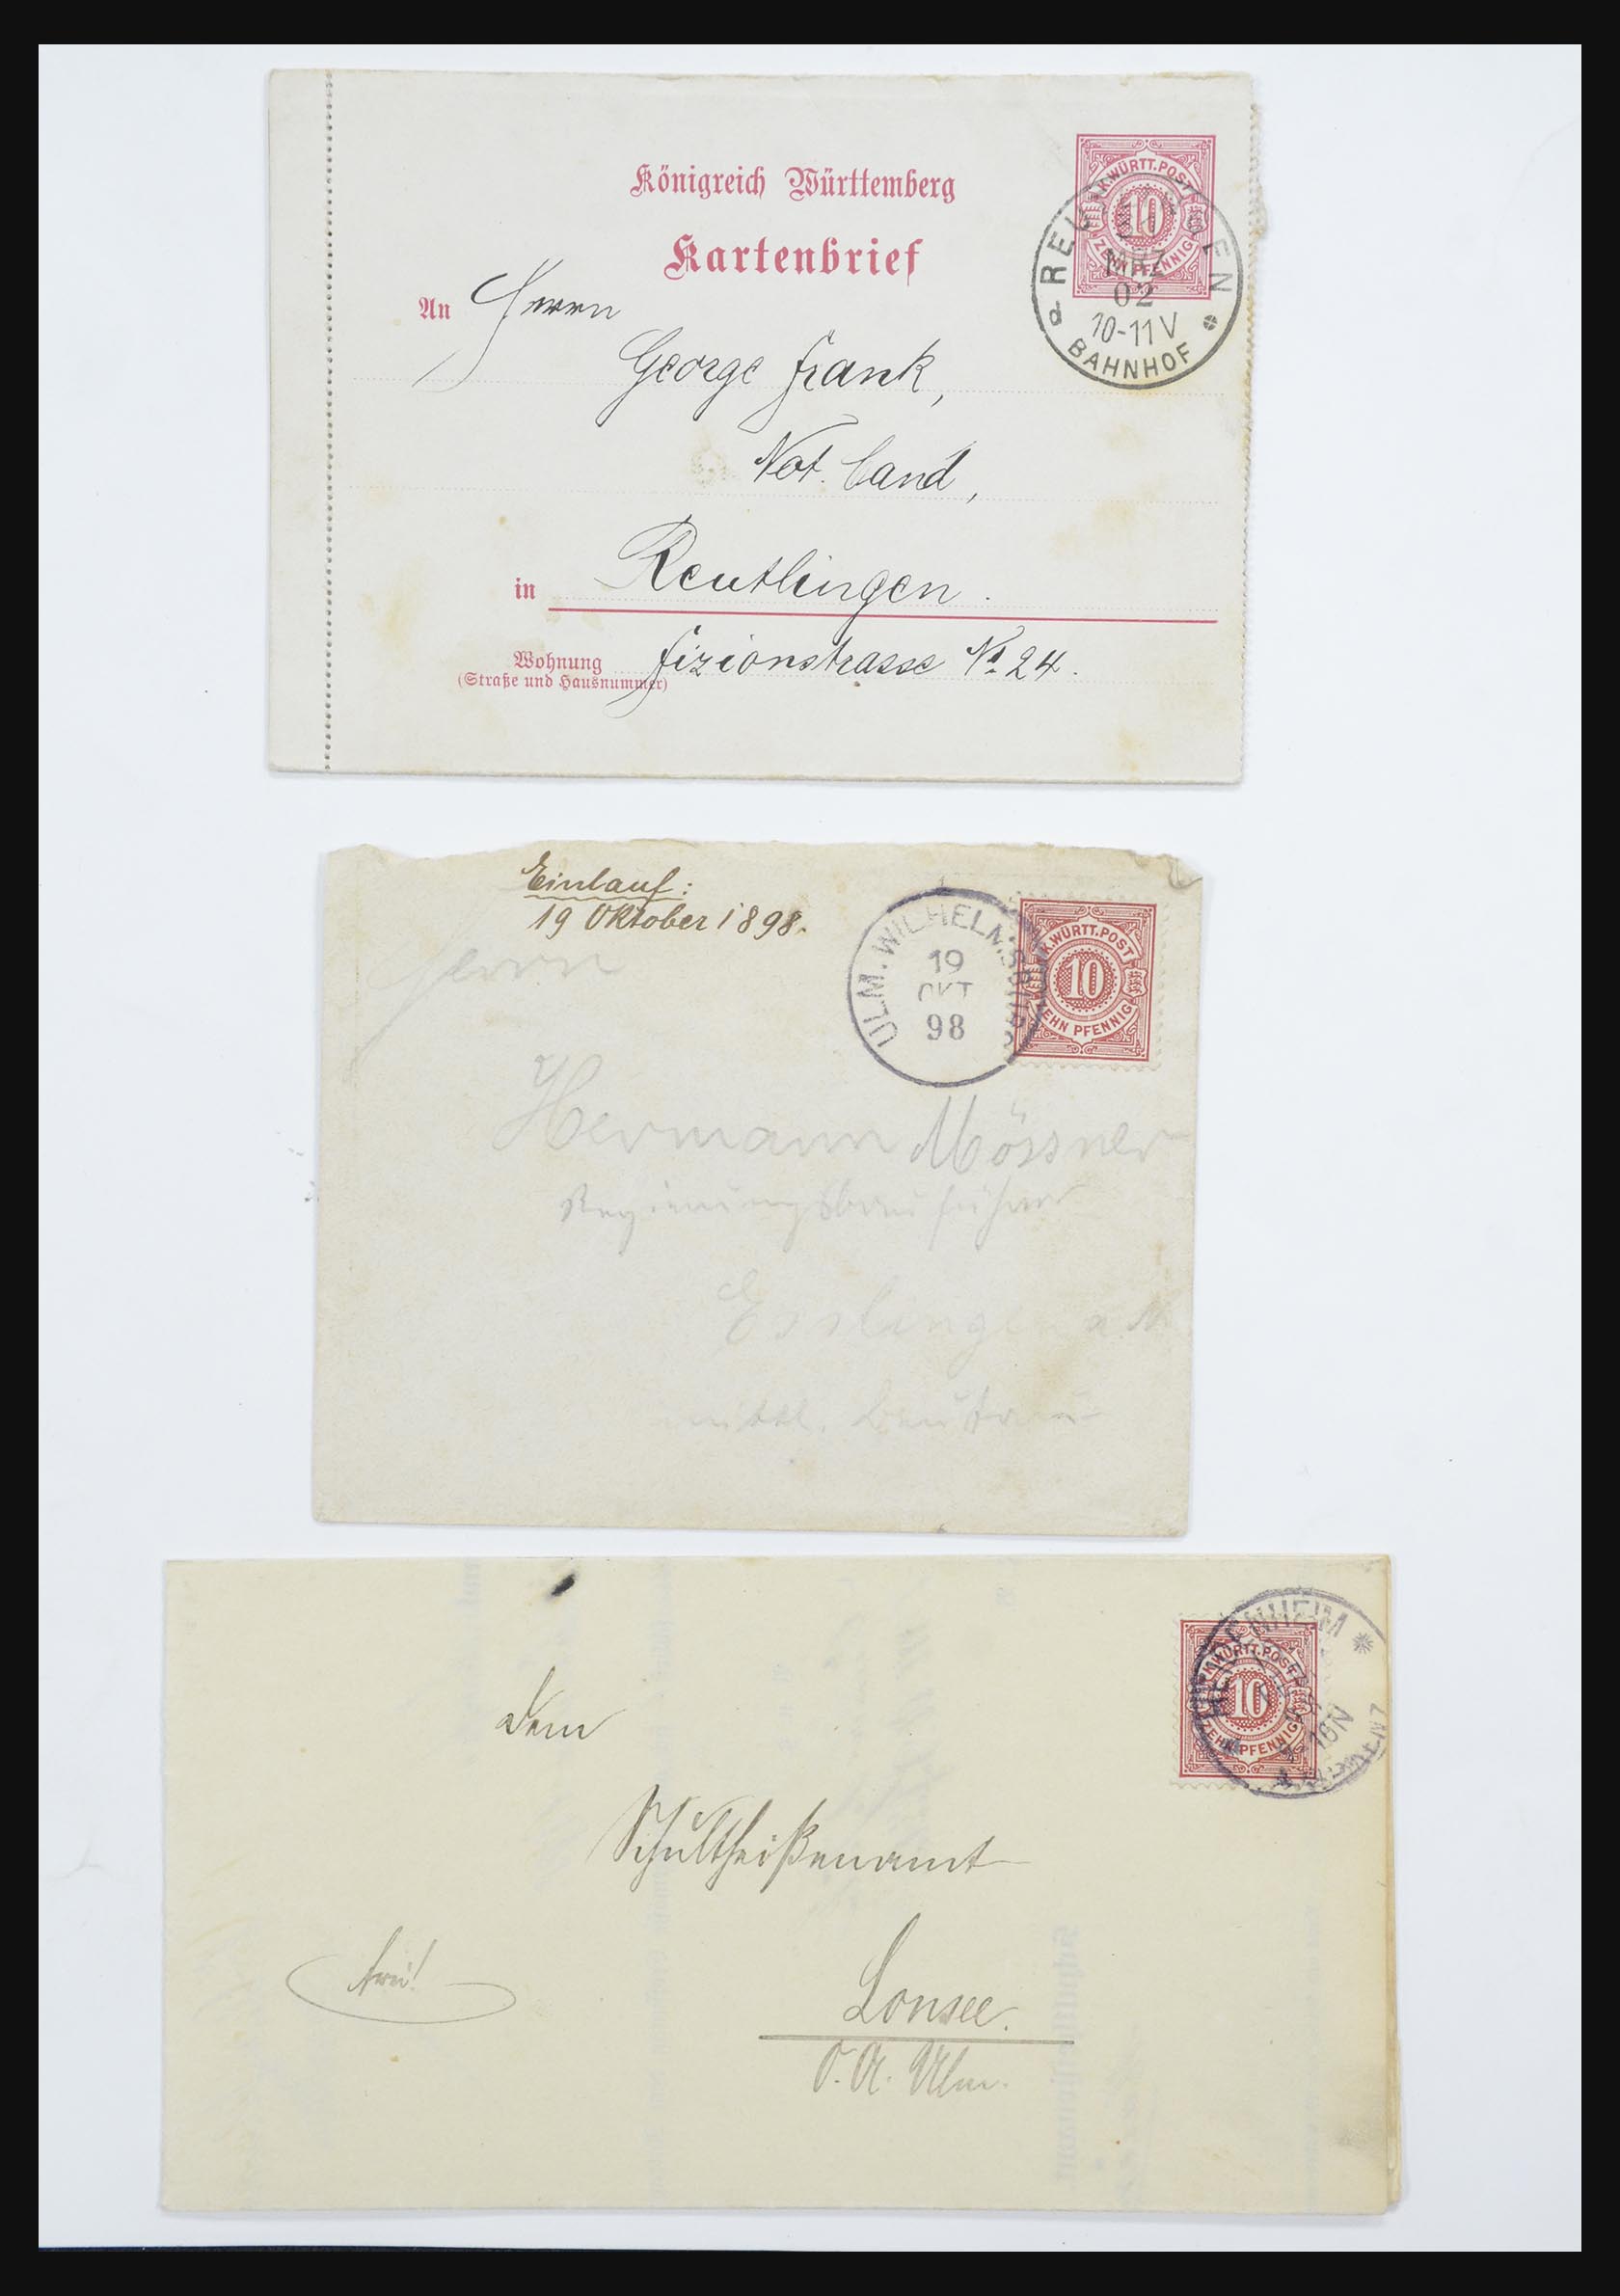 Königreich Württemberg
Kartenbrief
K.WÜRTT.POST
10
ZEHN PFENNIG
REUTLINGEN
MRZ
02
10-11 V
d
BAHNHOF
An Herrn
George Frank,
Not. Cand,
in Reutlingen.
Wohnung Fizionstrasse № 24.
(Straße und Hausnummer)
Einlauf:
19 Oktober 1898.
ULM. WILHELMSBURG
19
OKT
98
K.WÜRTT.POST
10
ZEHN PFENNIG
Herrn
Hermann Mössner
Regierungsbauführer
Esslingen a. N.
mittl. Beutau
HEIDENHEIM
K.WÜRTT.POST
10
ZEHN PFENNIG
Dem
Schultheißenamt
frei!
Lonsee.
O. A. Ulm.
Schultheißenamt